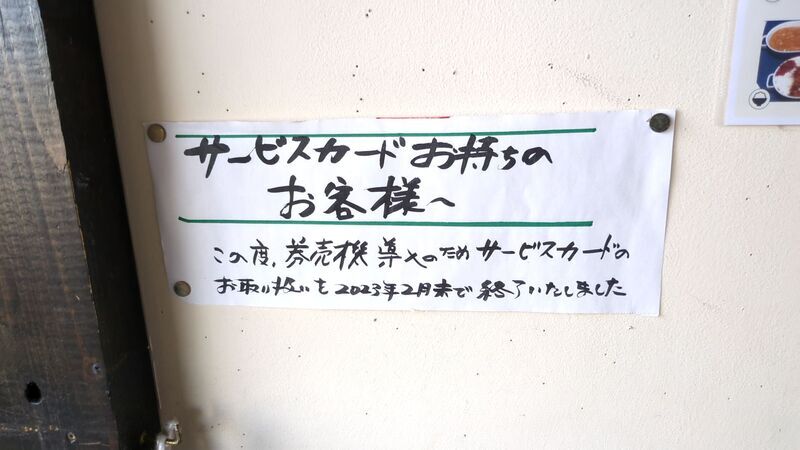 サービスカードお持ちの
お客様へ
この度、券売機導入のためサービスカードの
お取り払いを2023年2月末で終了いたしました